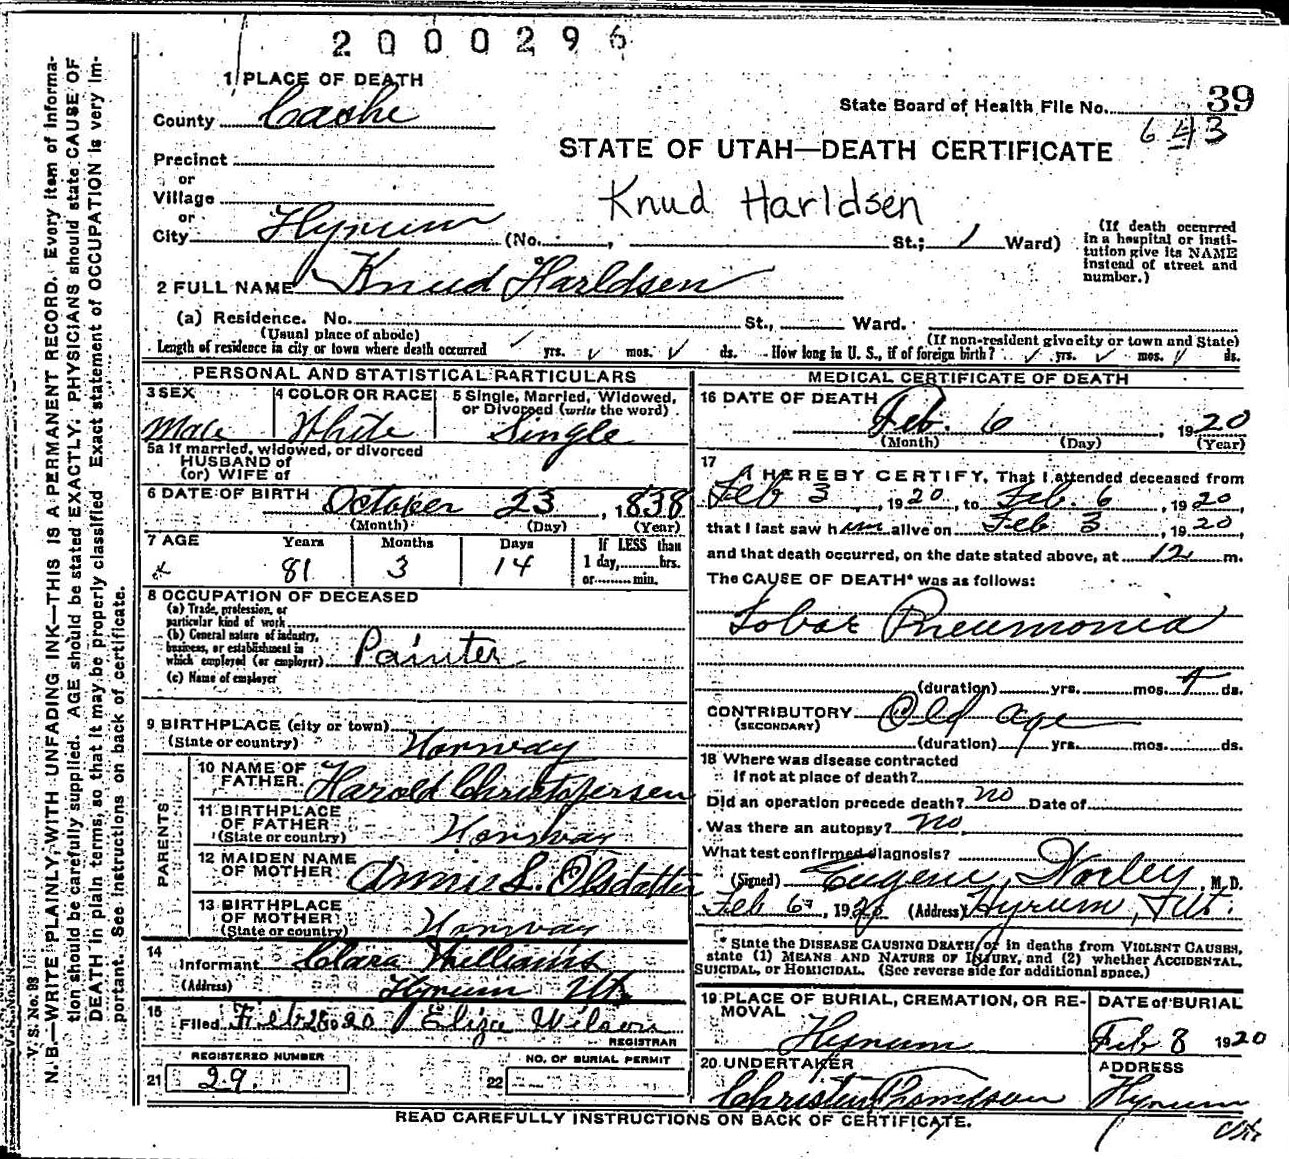 2000296
1 PLACE OF DEATH
County Cache
State Board of Health File No. 39
643
STATE OF UTAH—DEATH CERTIFICATE
Precinct
or
Village
or
Knud Harldsen
City Hyrum (No. , St.; 1 Ward)
(If death occurred in a hospital or insti-
tution give its NAME
instead of street and
number.)
2 FULL NAME Knud Harldsen
(a) Residence. No. St., Ward.
(Usual place of abode) (If non-resident give city or town and State)
Length of residence in city or town where death occurred yrs. mos. ds. How long in U. S., if of foreign birth? yrs. mos. ds.
PERSONAL AND STATISTICAL PARTICULARS
3 SEX 4 COLOR OR RACE 5 Single, Married, Widowed,
or Divorced (write the word)
Male White Single
5a If married, widowed, or divorced
HUSBAND of
(or) WIFE of
6 DATE OF BIRTH October 23, 1838
(Month) (Day) (Year)
7 AGE Years Months Days If LESS than
81 3 14 1 day, hrs.
or min.
8 OCCUPATION OF DECEASED
(a) Trade, profession, or
particular kind of work
(b) General nature of industry,
business, or establishment in
which employed (or employer) Painter
(c) Name of employer
9 BIRTHPLACE (city or town)
(State or country) Norway
PARENTS
10 NAME OF
FATHER Harold Christofersen
11 BIRTHPLACE
OF FATHER
(State or country) Norway
12 MAIDEN NAME
OF MOTHER Annie L. Olsdatter
13 BIRTHPLACE
OF MOTHER
(State or country) Norway
14
Informant Clara Williams
(Address) Hyrum Ut.
15
Filed Feb 28 1920 Eliza Wilson
REGISTRAR
REGISTERED NUMBER NO. OF BURIAL PERMIT
21 29. 22
MEDICAL CERTIFICATE OF DEATH
16 DATE OF DEATH
Feb. 6, 1920
(Month) (Day) (Year)
17
I HEREBY CERTIFY, That I attended deceased from
Feb 3, 1920, to Feb. 6, 1920,
that I last saw him alive on Feb 3, 1920,
and that death occurred, on the date stated above, at 12 m.
The CAUSE OF DEATH* was as follows:
Lobar Pneumonia
(duration) yrs. mos. ds.
CONTRIBUTORY Old age
(SECONDARY)
(duration) yrs. mos. ds.
18 Where was disease contracted
if not at place of death?
Did an operation precede death? no Date of
Was there an autopsy? no
What test confirmed diagnosis?
(Signed) Eugene Worley, M. D.
Feb 6, 1920 (Address) Hyrum, Ut.
* State the DISEASE CAUSING DEATH, or in deaths from VIOLENT CAUSES,
state (1) MEANS AND NATURE OF INJURY, and (2) whether ACCIDENTAL,
SUICIDAL, or HOMICIDAL. (See reverse side for additional space.)
19 PLACE OF BURIAL, CREMATION, OR RE-
MOVAL
Hyrum
DATE of BURIAL
Feb 8 1920
20 UNDERTAKER
Christen Thomsson
ADDRESS
Hyrum
Utr
READ CAREFULLY INSTRUCTIONS ON BACK OF CERTIFICATE.
V. S. No. 98
N. B.—WRITE PLAINLY, WITH UNFADING INK—THIS IS A PERMANENT RECORD. Every item of informa-
tion should be carefully supplied. AGE should be stated EXACTLY. PHYSICIANS should state CAUSE OF
DEATH in plain terms, so that it may be properly classified. Exact statement of OCCUPATION is very im-
portant. See instructions on back of certificate.